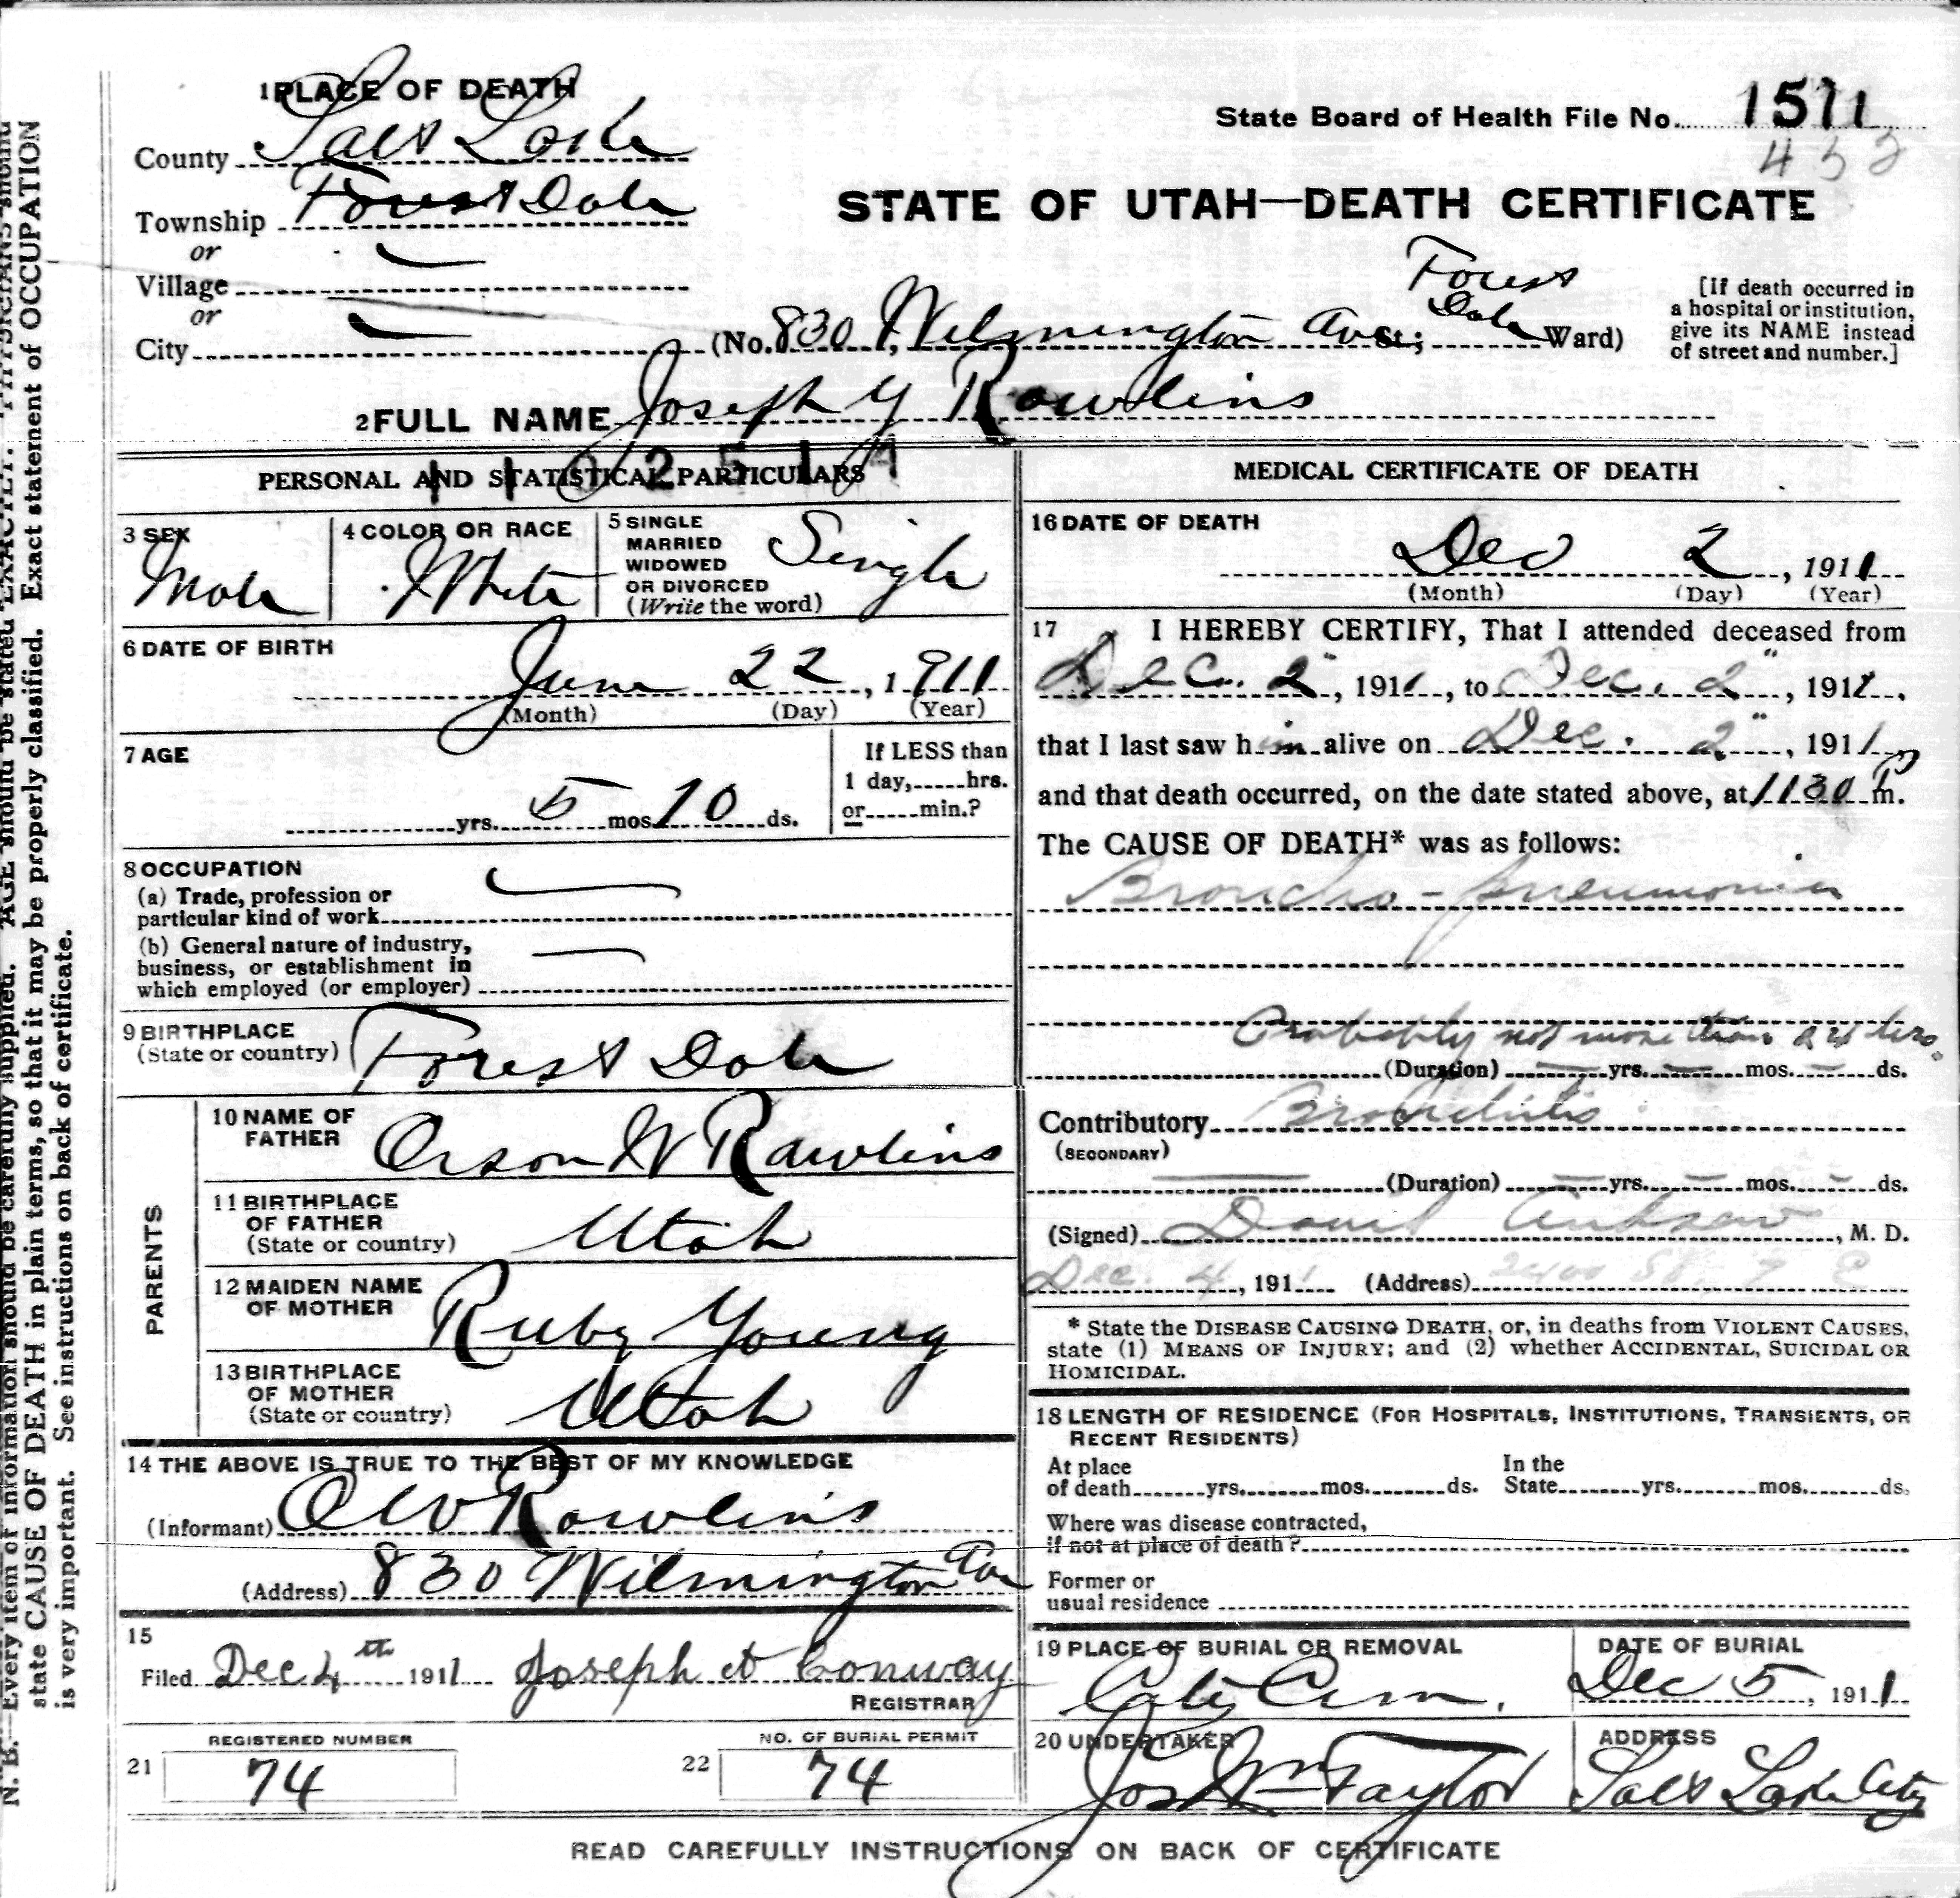 1 PLACE OF DEATH
State Board of Health File No. 1511
County Salt Lake
Township Forest Dale
STATE OF UTAH—DEATH CERTIFICATE
or
Village
or
City (No. 830, Wilmington Ave St.; Forest Dale Ward)
[If death occurred in
a hospital or institution,
give its NAME instead
of street and number.]
2 FULL NAME Joseph Y Rawlins
PERSONAL AND STATISTICAL PARTICULARS
3 SEX
Male
4 COLOR OR RACE
White
5 SINGLE
MARRIED
WIDOWED
OR DIVORCED
(Write the word)
Single
6 DATE OF BIRTH
June 22, 1911
(Month) (Day) (Year)
7 AGE
yrs. 5 mos. 10 ds.
If LESS than
1 day, hrs.
or min.?
8 OCCUPATION
(a) Trade, profession or
particular kind of work
(b) General nature of industry,
business, or establishment in
which employed (or employer)
9 BIRTHPLACE
(State or country) Forest Dale
PARENTS
10 NAME OF
FATHER Orson W Rawlins
11 BIRTHPLACE
OF FATHER
(State or country) Utah
12 MAIDEN NAME
OF MOTHER Ruby Young
13 BIRTHPLACE
OF MOTHER
(State or country) Utah
14 THE ABOVE IS TRUE TO THE BEST OF MY KNOWLEDGE
(Informant) O W Rawlins
(Address) 830 Wilmington Ave
15
Filed Dec 4th 1911 Joseph Conway
REGISTRAR
REGISTERED NUMBER
21 74
NO. OF BURIAL PERMIT
22 74
MEDICAL CERTIFICATE OF DEATH
16 DATE OF DEATH
Dec 2, 1911
(Month) (Day) (Year)
17 I HEREBY CERTIFY, That I attended deceased from
Dec. 2", 1911, to Dec. 2", 1911,
that I last saw him alive on Dec. 2", 1911
and that death occurred, on the date stated above, at 1130 P m.
The CAUSE OF DEATH* was as follows:
Broncho-pneumonia
Probably not more than 24 hrs.
(Duration) yrs. mos. ds.
Contributory Bronchitis
(SECONDARY)
(Duration) yrs. mos. ds.
(Signed) David, M. D.
Dec. 4, 1911 (Address) 2400 So. 7 E
* State the DISEASE CAUSING DEATH, or, in deaths from VIOLENT CAUSES,
state (1) MEANS OF INJURY; and (2) whether ACCIDENTAL, SUICIDAL OR
HOMICIDAL.
18 LENGTH OF RESIDENCE (FOR HOSPITALS, INSTITUTIONS, TRANSIENTS, OR
RECENT RESIDENTS)
At place
of death yrs. mos. ds.
In the
State yrs. mos. ds.
Where was disease contracted,
if not at place of death?
Former or
usual residence
19 PLACE OF BURIAL OR REMOVAL
City Cem.
DATE OF BURIAL
Dec 5, 1911
20 UNDERTAKER
Jos Wm Taylor
ADDRESS
Salt Lake City
READ CAREFULLY INSTRUCTIONS ON BACK OF CERTIFICATE
N. B.—Every item of information should be carefully supplied. AGE should be stated EXACTLY. PHYSICIANS should
state CAUSE OF DEATH in plain terms, so that it may be properly classified. Exact statement of OCCUPATION
is very important. See instructions on back of certificate.